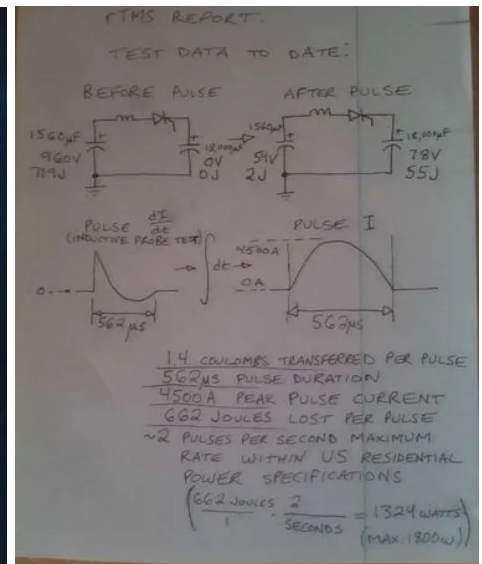 rTMS REPORT.
TEST DATA TO DATE:
BEFORE PULSE
1560µF
960V
719J
18,000µF
0V
0J
AFTER PULSE
1560µF
54V
2J
18,000µF
78V
55J
PULSE dI/dt
(INDUCTIVE PROBE TEST)
0
562µs
∫ dt
PULSE I
4500A
0A
562µs
1.4 COULOMBS TRANSFERRED PER PULSE
562µs PULSE DURATION
4500A PEAK PULSE CURRENT
662 JOULES LOST PER PULSE
~2 PULSES PER SECOND MAXIMUM
RATE WITHIN US RESIDENTIAL
POWER SPECIFICATIONS
(662 JOULES/1 · 2/SECONDS = 1324 WATTS)
(MAX. 1800W)